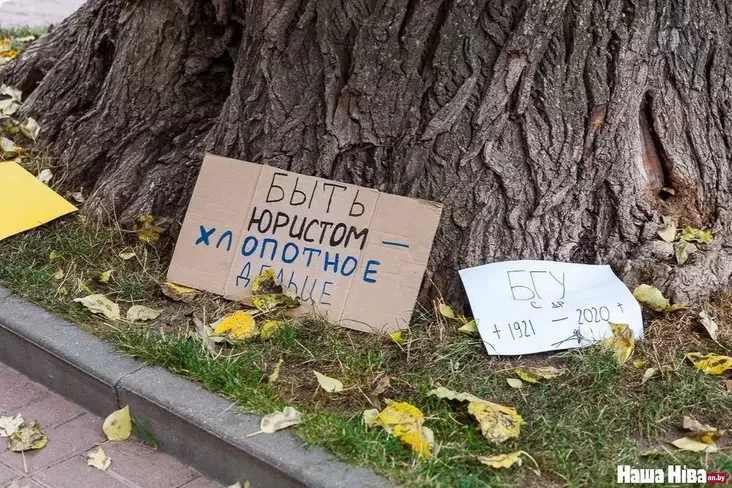 БЫТЬ
ЮРИСТОМ
ХЛОПОТНОЕ —
ДЕЛЬЦЕ
БГУ
С ДР
+ 1921 — 2020 +
Наша Нiва nn.by